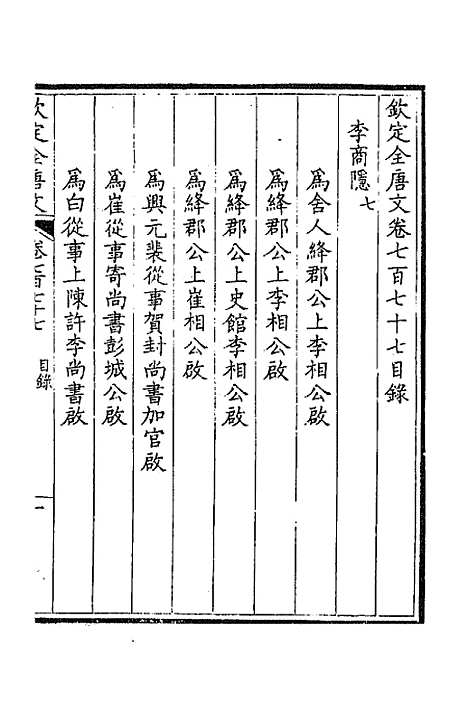 欽定全唐文卷七百七十七目錄
李商隱七
爲舍人絳郡公上李相公啟
爲絳郡公上李相公啟
爲絳郡公上史館李相公啟
爲絳郡公上崔相公啟
爲興元裴從事賀封尚書加官啟
爲崔從事寄尚書彭城公啟
爲白從事上陳許李尚書啟
欽定全唐文
卷七百七十七
目錄
一